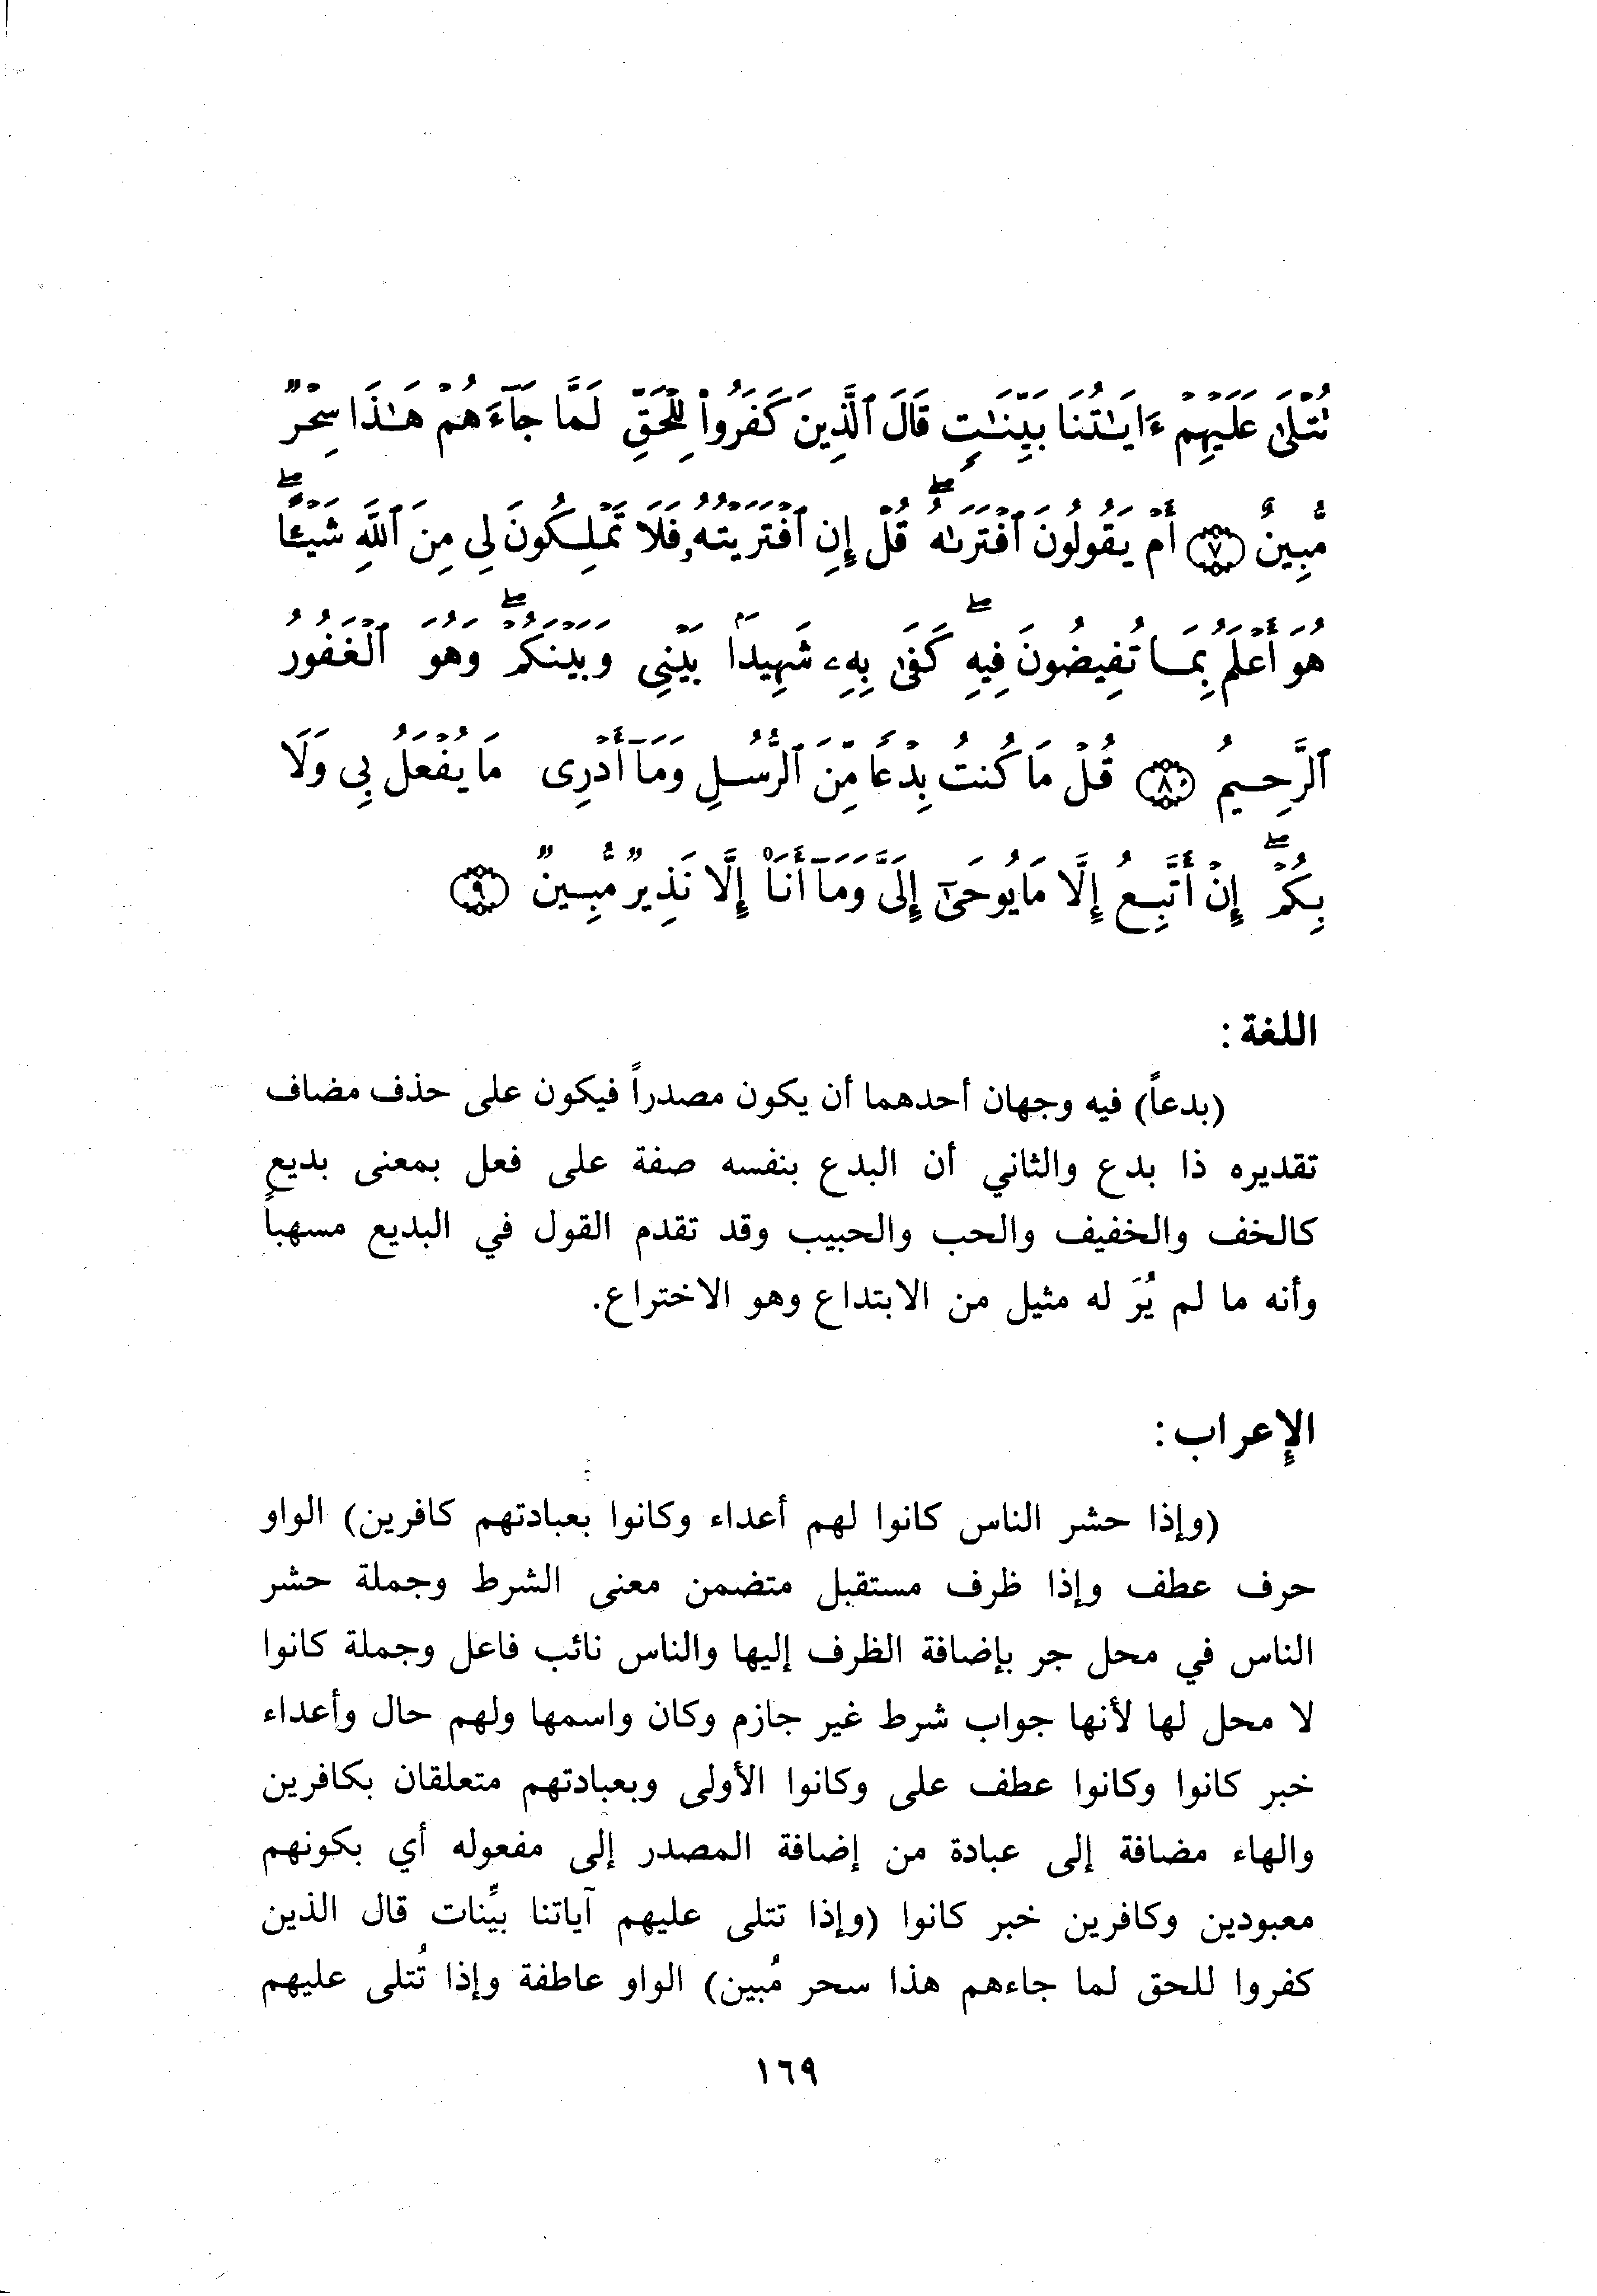 تُتْلَىٰ عَلَيْهِمْ ءَايَـٰتُنَا بَيِّنَـٰتٍ قَالَ ٱلَّذِينَ كَفَرُوا۟ لِلْحَقِّ لَمَّا جَآءَهُمْ هَـٰذَا سِحْرٌ
مُّبِينٌ ﴿٧﴾ أَمْ يَقُولُونَ ٱفْتَرَىٰهُ ۖ قُلْ إِنِ ٱفْتَرَيْتُهُۥ فَلَا تَمْلِكُونَ لِى مِنَ ٱللَّهِ شَيْـًٔا ۖ
هُوَ أَعْلَمُ بِمَا تُفِيضُونَ فِيهِ ۖ كَفَىٰ بِهِۦ شَهِيدًۢا بَيْنِى وَبَيْنَكُمْ ۖ وَهُوَ ٱلْغَفُورُ
ٱلرَّحِيمُ ﴿٨﴾ قُلْ مَا كُنتُ بِدْعًا مِّنَ ٱلرُّسُلِ وَمَآ أَدْرِى مَا يُفْعَلُ بِى وَلَا
بِكُمْ ۖ إِنْ أَتَّبِعُ إِلَّا مَا يُوحَىٰٓ إِلَىَّ وَمَآ أَنَا۠ إِلَّا نَذِيرٌ مُّبِينٌ ﴿٩﴾
اللغة :
(بدعاً) فيه وجهان أحدهما أن يكون مصدراً فيكون على حذف مضاف
تقديره ذا بدع والثاني أن البدع بنفسه صفة على فعل بمعنى بديع
كالخف والخفيف والحب والحبيب وقد تقدم القول في البديع مسهباً
وأنه ما لم يُرَ له مثيل من الابتداع وهو الاختراع.
الإعراب :
(وإذا حشر الناس كانوا لهم أعداء وكانوا بعبادتهم كافرين) الواو
حرف عطف وإذا ظرف مستقبل متضمن معنى الشرط وجملة حشر
الناس في محل جر بإضافة الظرف إليها والناس نائب فاعل وجملة كانوا
لا محل لها لأنها جواب شرط غير جازم وكان واسمها ولهم حال وأعداء
خبر كانوا وكانوا عطف على وكانوا الأولى وبعبادتهم متعلقان بكافرين
والهاء مضافة إلى عبادة من إضافة المصدر إلى مفعوله أي بكونهم
معبودين وكافرين خبر كانوا (وإذا تتلى عليهم آياتنا بيِّنات قال الذين
كفروا للحق لما جاءهم هذا سحر مُبين) الواو عاطفة وإذا تُتلى عليهم
١٦٩